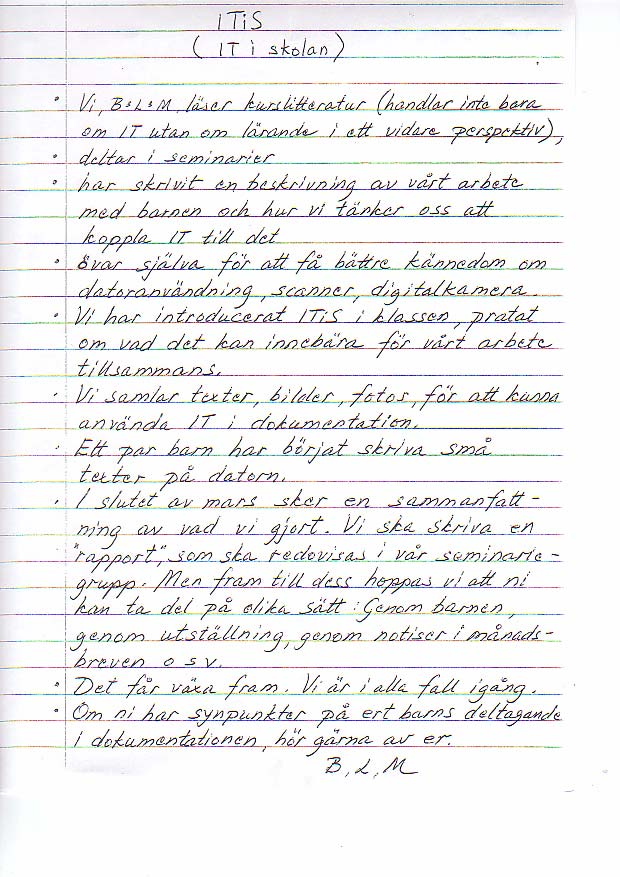 ITiS
(IT i skolan)
• Vi, B & L & M, läser kurslitteratur (handlar inte bara
om IT utan om lärande i ett vidare perspektiv),
• deltar i seminarier
• har skrivit en beskrivning av vårt arbete
med barnen och hur vi tänker oss att
koppla IT till det
• övar själva för att få bättre kännedom om
datoranvändning, scanner, digitalkamera.
• Vi har introducerat ITiS i klassen, pratat
om vad det kan innebära för vårt arbete
tillsammans.
• Vi samlar texter, bilder, fotos, för att kunna
använda IT i dokumentation.
• Ett par barn har börjat skriva små
texter på datorn.
• I slutet av mars sker en sammanfatt-
ning av vad vi gjort. Vi ska skriva en
"rapport", som ska redovisas i vår seminarie-
grupp. Men fram till dess hoppas vi att ni
kan ta del på olika sätt: Genom barnen,
genom utställning, genom notiser i månads-
breven o s v.
• Det får växa fram. Vi är i alla fall igång.
• Om ni har synpunkter på ert barns deltagande
i dokumentationen, hör gärna av er.
B, L, M